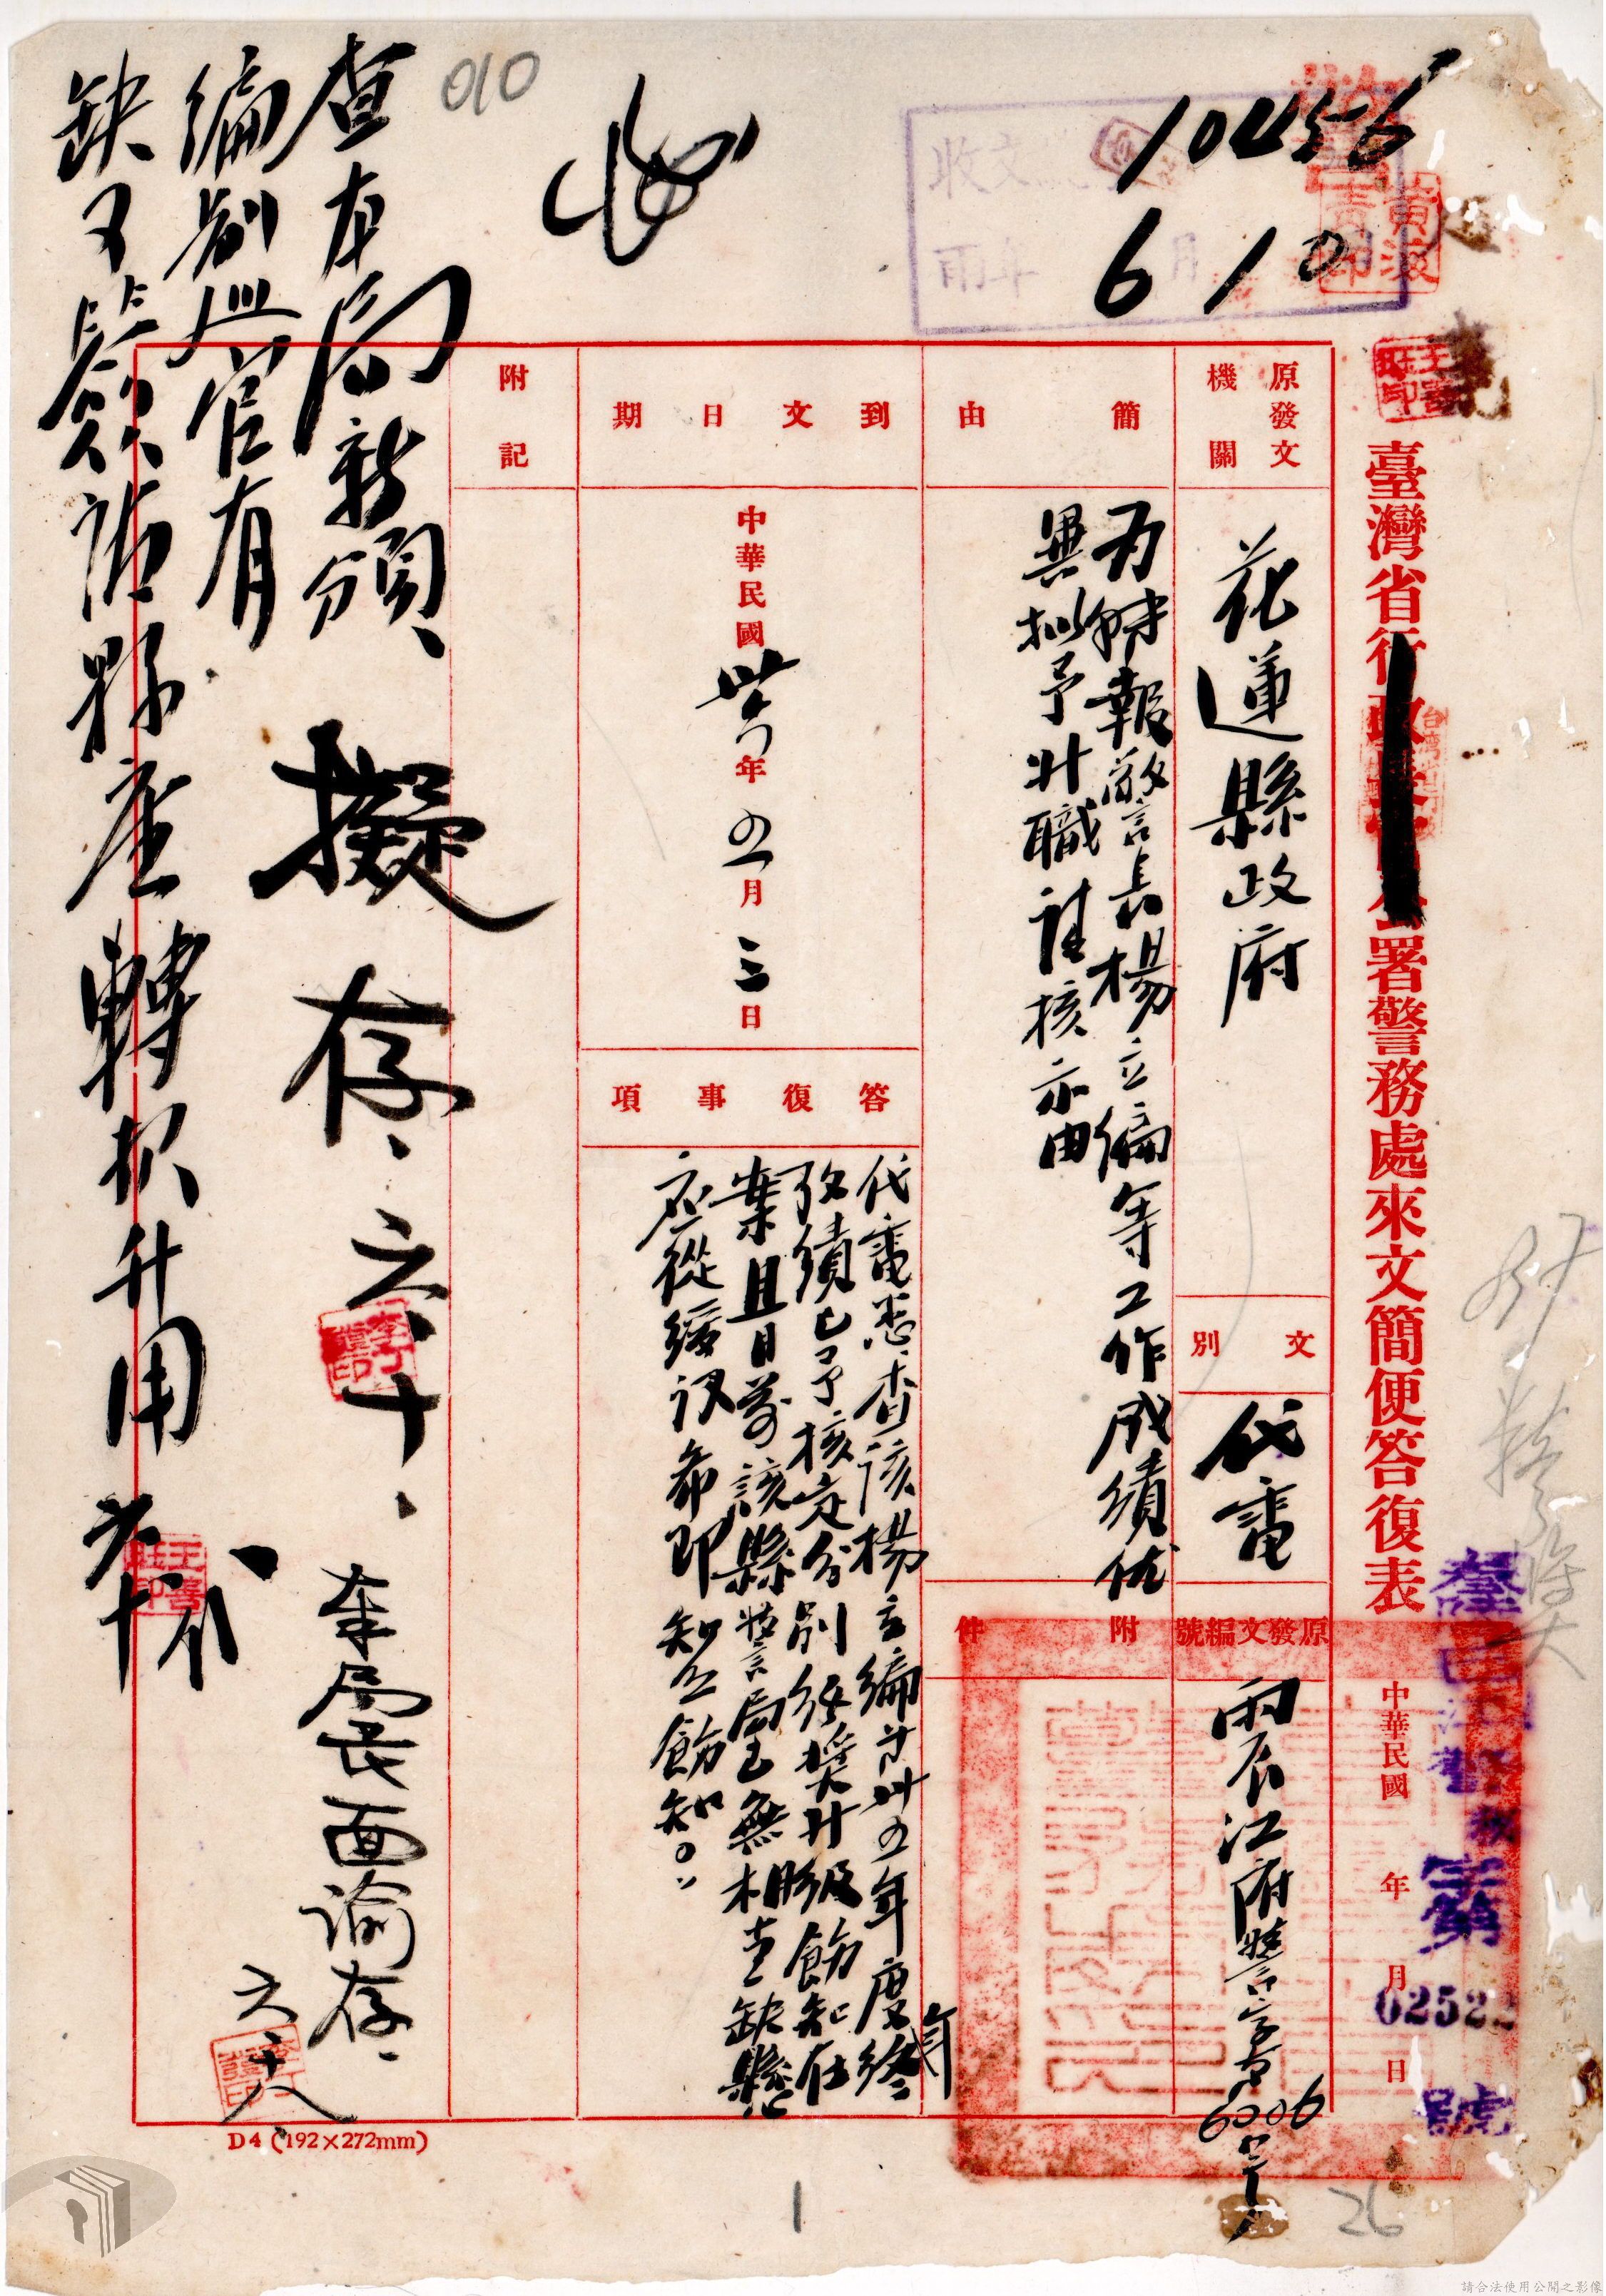 010
10456
6 10
臺灣省行政長官公署警務處來文簡便答復表
中華民國 年 月 日
02522
號
原發文機關
花蓮縣政府
文別
代電
原發文編號
府警字第6006號
簡由
為轉報警長楊立編等工作成績優
異擬予升職請核示由
附件
到文日期
中華民國卅六年四月三日
答復事項
代電悉查該楊立編等卅四年度終年
攷績已予核定分別給獎升級飭知在
案且目前該縣警局已無相當缺懸
应從緩议希即知照飭知。
附記
擬存、六、十、
奉局長面諭存、
六、十八
查本局新頒
編制巡官有
缺又
縣座轉报升用
D4 (192×272mm)
1
26
請合法使用公開之影像